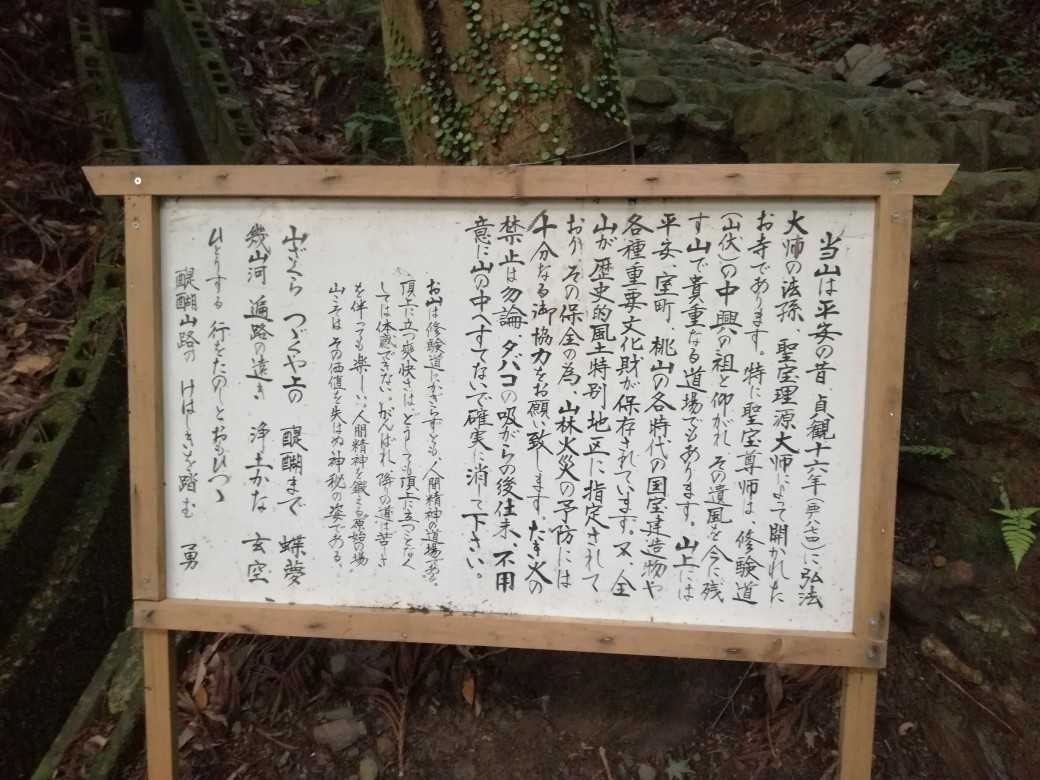 当山は平安の昔、貞観十六年(西八七四)に弘法
大师の法孫、聖宝理源大师によって開かれた
お寺であります。特に聖宝尊师は、修験道
(山伏)の中興の祖と仰がれ、その遺風を今に残
す山で貴重なる道場でもあります。山上には
平安、室町、桃山の各時代の国宝建造物や
各種重要文化財が保存されています。又、全
山が歴史的風土特別地区に指定されて
おり、その保全の為、山林火災の予防には
十分なる御協力をお願い致します。たき火の
禁止は勿論、タバコの吸がらの後仕末、不用
意に山の中へすてないで確実に消して下さい。
お山は修験道にかぎらずとも、人間精神の道場である。
頂上に立つ爽快さは、どうしても頂上に立つことなく
しては体感できない。がんばれ、降りの道は苦しさ
を伴っても楽しい、人間精神を鍛える原始の場
山こそは その価値を失はぬ神秘の姿である。
山ざくら つづくや上の 醍醐まで 蝶夢
幾山河 遍路の遠き 浄土かな 玄空
ひとりする 行をたのしとおもひつゝ
醍醐山路の けはしきを踏む 勇